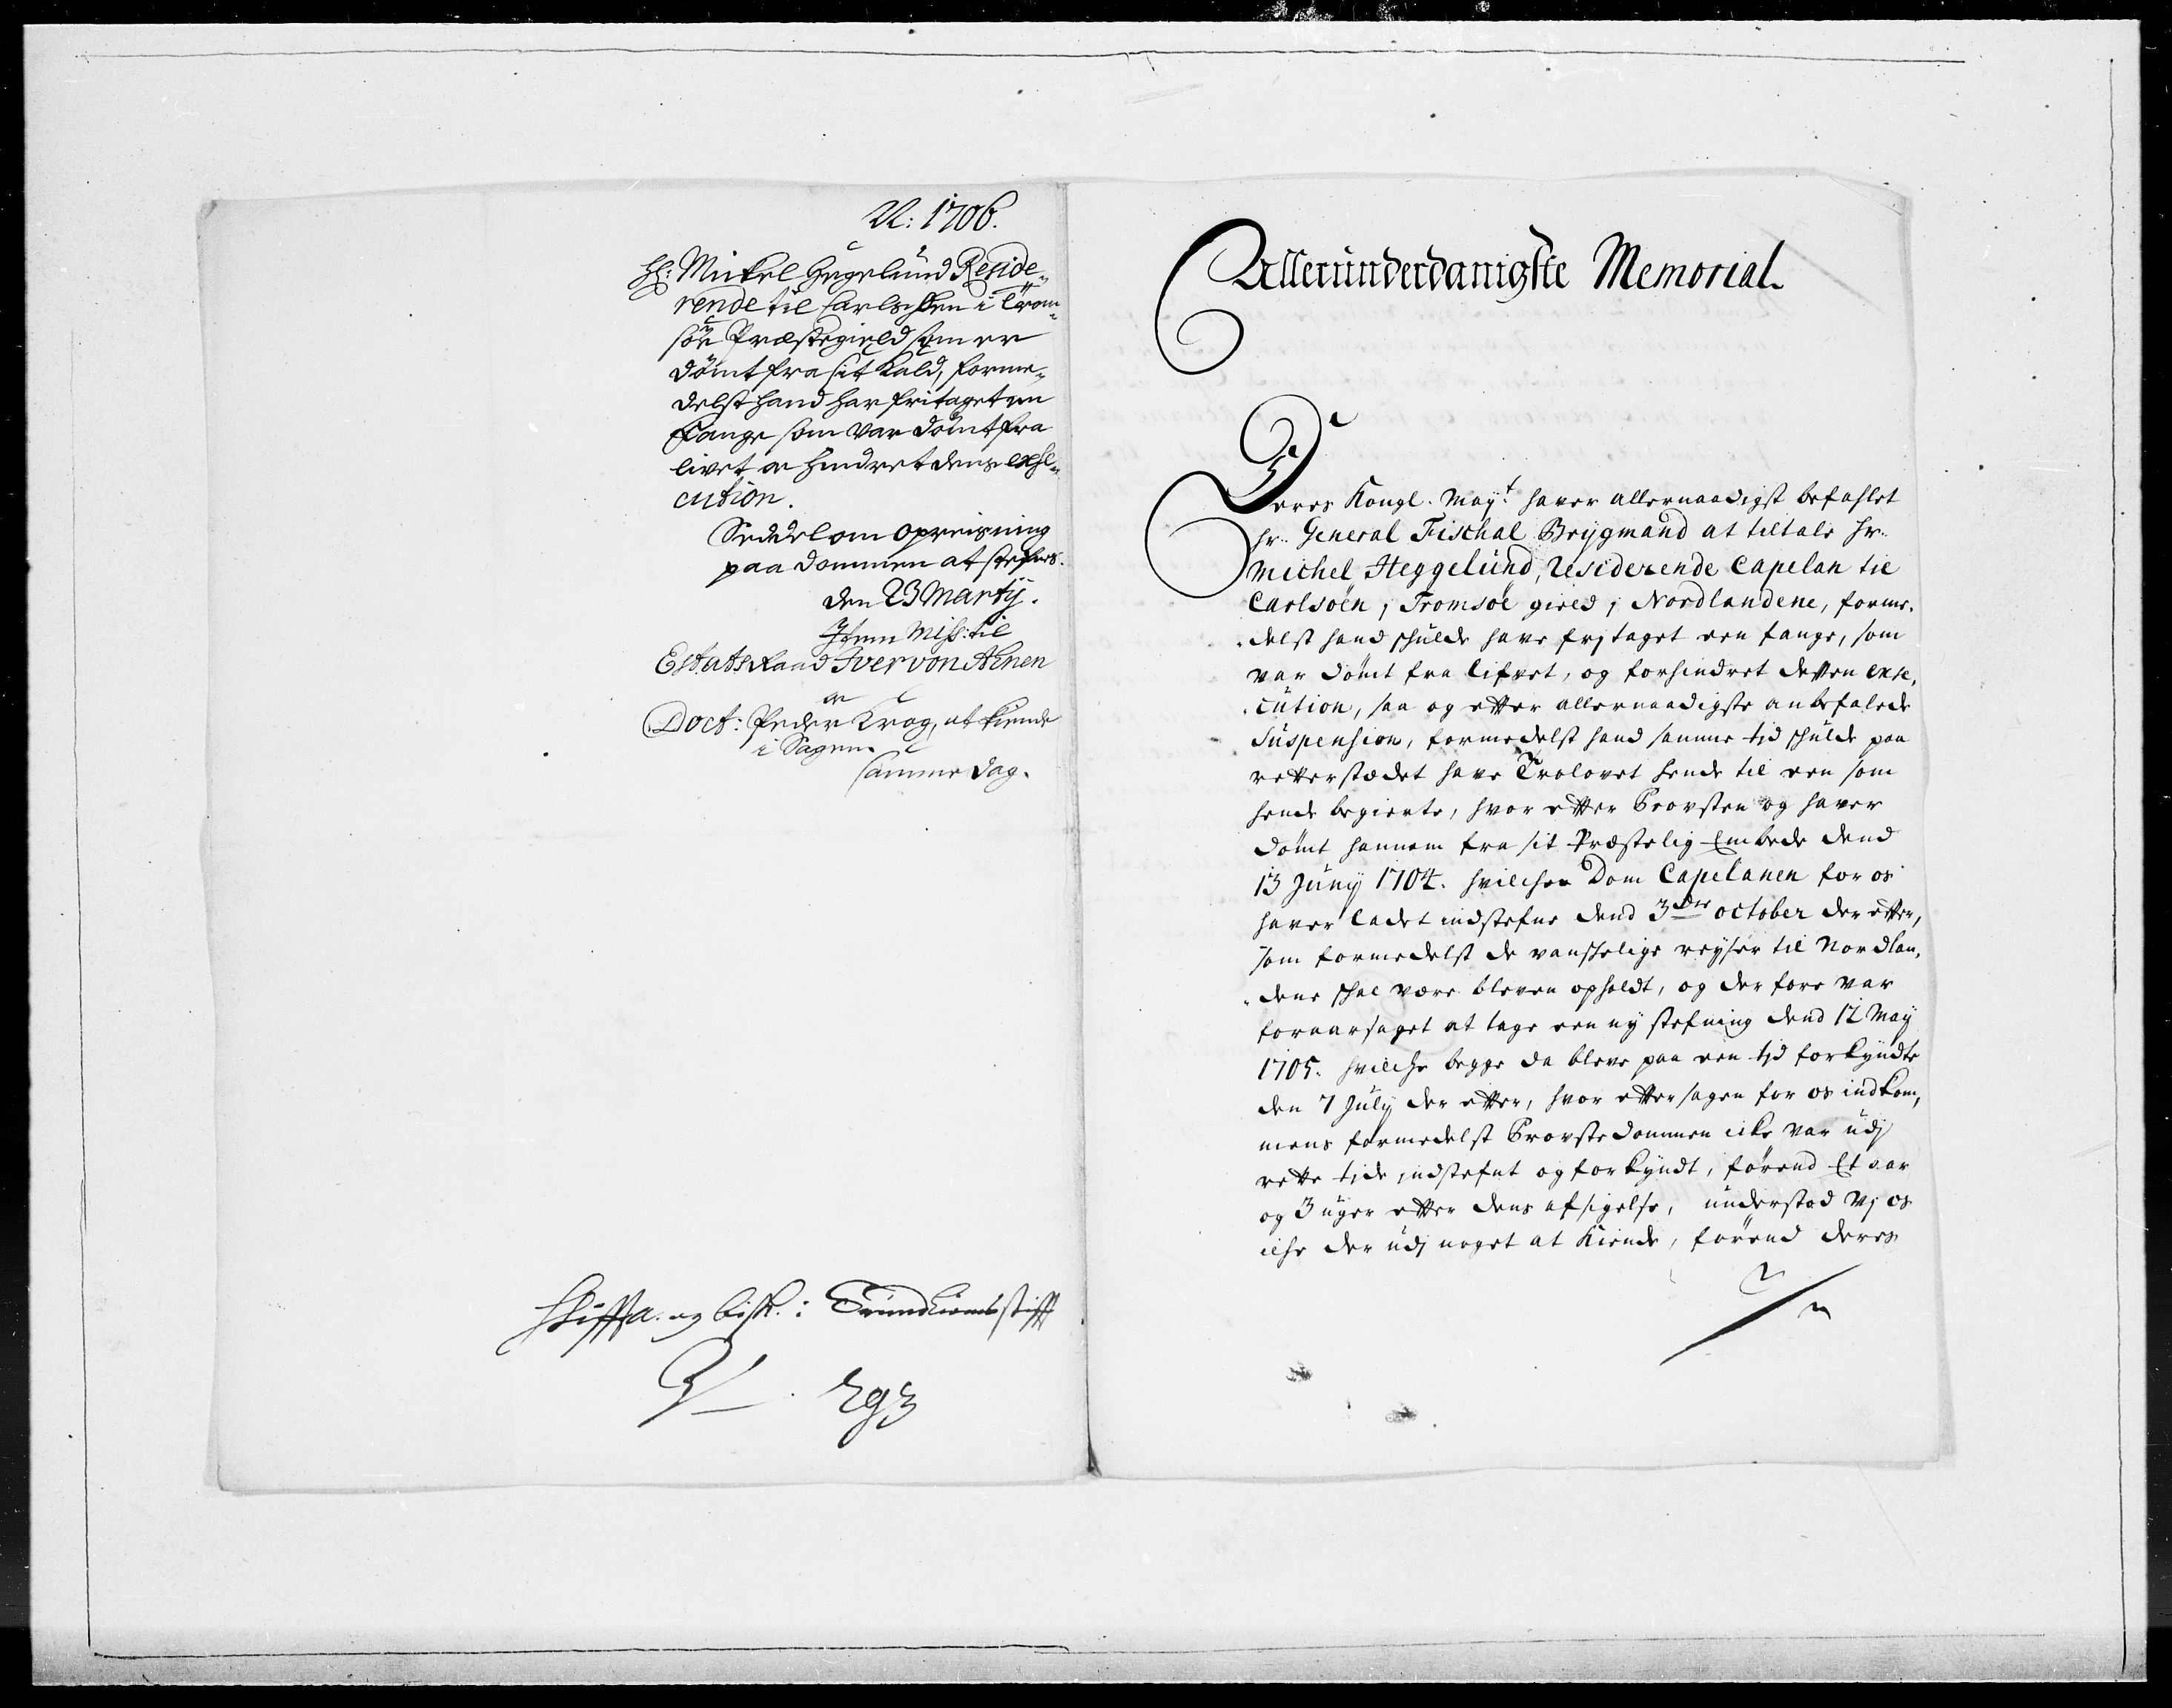 A: 1706.
Hl: Mickel Hegelund Reside-
rende til Carlsöen i Trom-
söe Præstegield som er
dömt fra sit Kald, forme-
delst hand har fritaget en
Fange som var dömt fra
livet oc hindret dens exse-
cution.
Seddel om opreisning
paa dommen at stefnes.
den 23 Martij.
Item Miss: til
Estats Raad Iver von Ahnen
oc
Doct: Peder Krog, at kiende
i Sagen.
samme dag.
Stiffta. og bisk. i Trundhiems stifft
Allerunderdanigste Memorial.
Deres Kongl. Mayt. haver allernaadigst befahlet
hr. General Fischal Brygmand at tiltale hr.
Michel Heggelund, Residerende Capelan til
Carlsöen, i Tromsöe gield, i Nordlandene, forme-
delst hand schulde have frjtaget een fange, som
var dömt fra lifvet, og forhindret detten exse-
cution, saa og efter allernaadigste anbefalede
Suspension, formedelst hand samme tid schulde paa
retterstædet have Trolovet hende til een som
hende begierte, hvor efter Provsten og haver
dömt hannem fra sit Præstelig Embede dend
13 Junij 1704. hvilchen Dom Capelanen for os
haver ladet indstefne dend 3die october der efter,
som formedelst de vanschelige reyser til Nordlan-
dene schal være bleven opholdt, og der fore var
foraarsaget at tage een ny stefning dend 12 Maij
1705. hvilche begge da bleve paa een tid forkyndte
den 7 Julij der efter, hvor efter sagen for os indkom,
mens formedelst Provstedommen icke var udj
rette tide indstefnt og forkyndt, förend Et aar
og 3 uger efter dens afsigelse, understod vj os
iche der udj noget at Kiende, förend deres